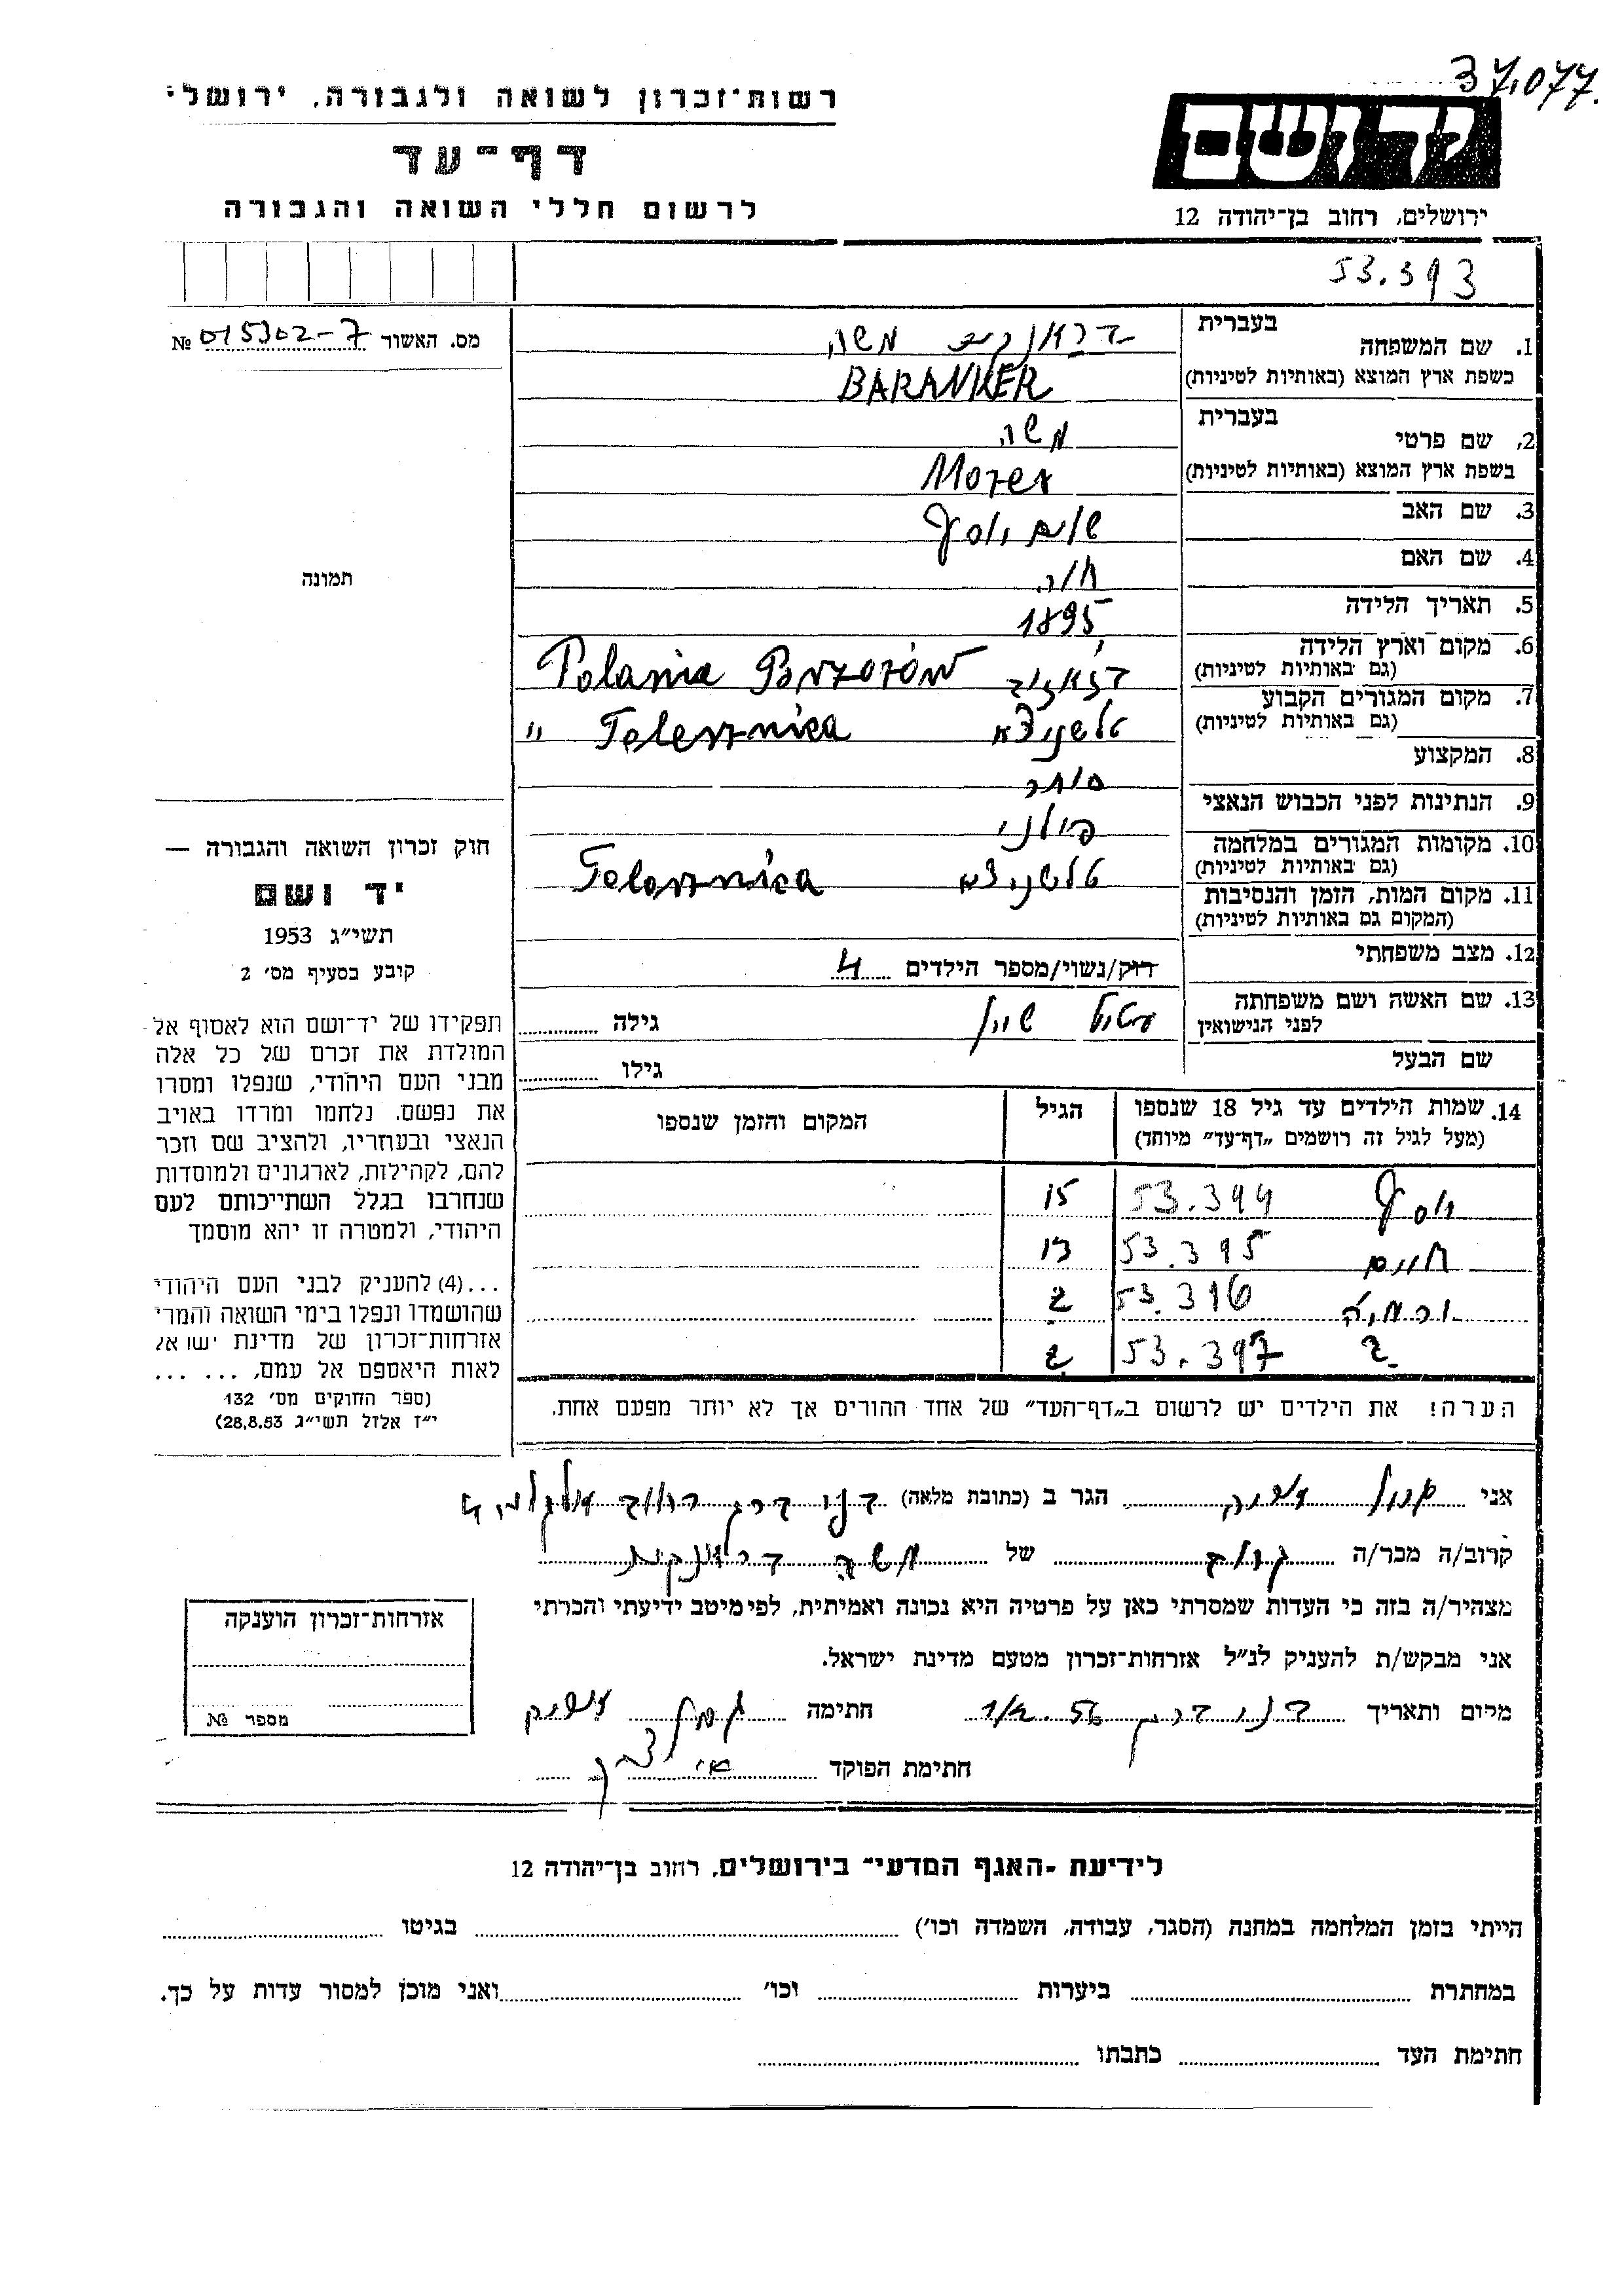 37.077
רשות־זכרון לשואה ולגבורה, ירושלי
דף־עד
לרשום חללי השואה והגבורה
יד ושם
ירושלים, רחוב בן־יהודה 12
53.393
מס. האשור 015302-7 №
1. שם המשפחה בעברית בראנקר משה
בשפת ארץ המוצא (באותיות לטיניות) BARANKER
2. שם פרטי בעברית משה
בשפת ארץ המוצא (באותיות לטיניות) Mozes
3. שם האב שלום יוסף
4. שם האם חיה
5. תאריך הלידה 1895
6. מקום וארץ הלידה (גם באותיות לטיניות) Polania Brzozów
7. מקום המגורים הקבוע (גם באותיות לטיניות) טלשניצא Telesznica "
8. המקצוע סוחר
9. הנתינות לפני הכבוש הנאצי פולני
10. מקומות המגורים במלחמה (גם באותיות לטיניות) טלשניצא Telesznica
11. מקום המות, הזמן והנסיבות (המקום גם באותיות לטיניות)
12. מצב משפחתי רוק/נשוי/מספר הילדים 4
13. שם האשה ושם משפחתה לפני הנישואין גילה
שם הבעל גילו
14. שמות הילדים עד גיל 18 שנספו הגיל המקום והזמן שנספו
(מעל לגיל זה רושמים „דף־עד" מיוחד)
יוסף 53.394 15
חיים 53.395 13
ירמיה 53.396 ?
? 53.397 ?
הערה! את הילדים יש לרשום ב„דף־העד" של אחד ההורים אך לא יותר מפעם אחת.
תמונה
חוק זכרון השואה והגבורה —
יד ושם
תשי״ג 1953
קובע בסעיף מס׳ 2
תפקידו של יד־ושם הוא לאסוף אל
המולדת את זכרם של כל אלה
מבני העם היהודי, שנפלו ומסרו
את נפשם. נלחמו ומרדו באויב
הנאצי ובעוזריו, ולהציב שם וזכר
להם, לקהילות, לארגונים ולמוסדות
שנחרבו בגלל השתייכותם לעם
היהודי, ולמטרה זו יהא מוסמך
...(4) להעניק לבני העם היהודי
שהושמדו ונפלו בימי השואה והמרי
אזרחות־זכרון של מדינת ישראל
לאות היאספם אל עמם, ... ...
(ספר החוקים מס׳ 132
י״ז אלול תשי״ג 28.8.53)
אני הגר ב (כתובת מלאה) בני ברק רחוב
קרוב/ה מכר/ה קרוב של משה בראנקר
מצהיר/ה בזה כי העדות שמסרתי כאן על פרטיה היא נכונה ואמיתית, לפי מיטב ידיעתי והכרתי
אני מבקש/ת להעניק לנ״ל אזרחות־זכרון מטעם מדינת ישראל.
מקום ותאריך בני ברק חתימה
חתימת הפוקד
אזרחות־זכרון הוענקה
מספר №
לידיעת ־האגף המדעי־ בירושלים, רחוב בן־יהודה 12
הייתי בזמן המלחמה במחנה (הסגר, עבודה, השמדה וכו׳) בגיטו
במחתרת ביערות וכו׳ ואני מוכן למסור עדות על כך.
חתימת העד כתבתו